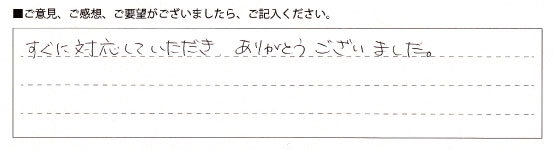 ■ご意見、ご感想、ご要望がございましたら、ご記入ください。
すぐに対応していただき、ありがとうございました。